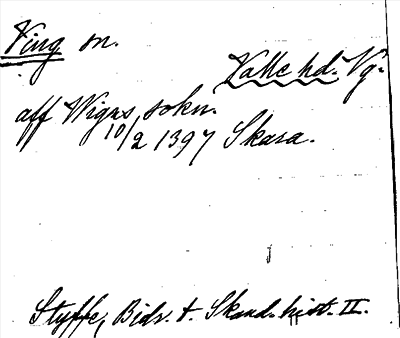 Ving sn.
Valle hd. Vg.
aff Wigns sokn.
10/2 1397 Skara.
Styffe, Bidr. t. Skand. hist. II.